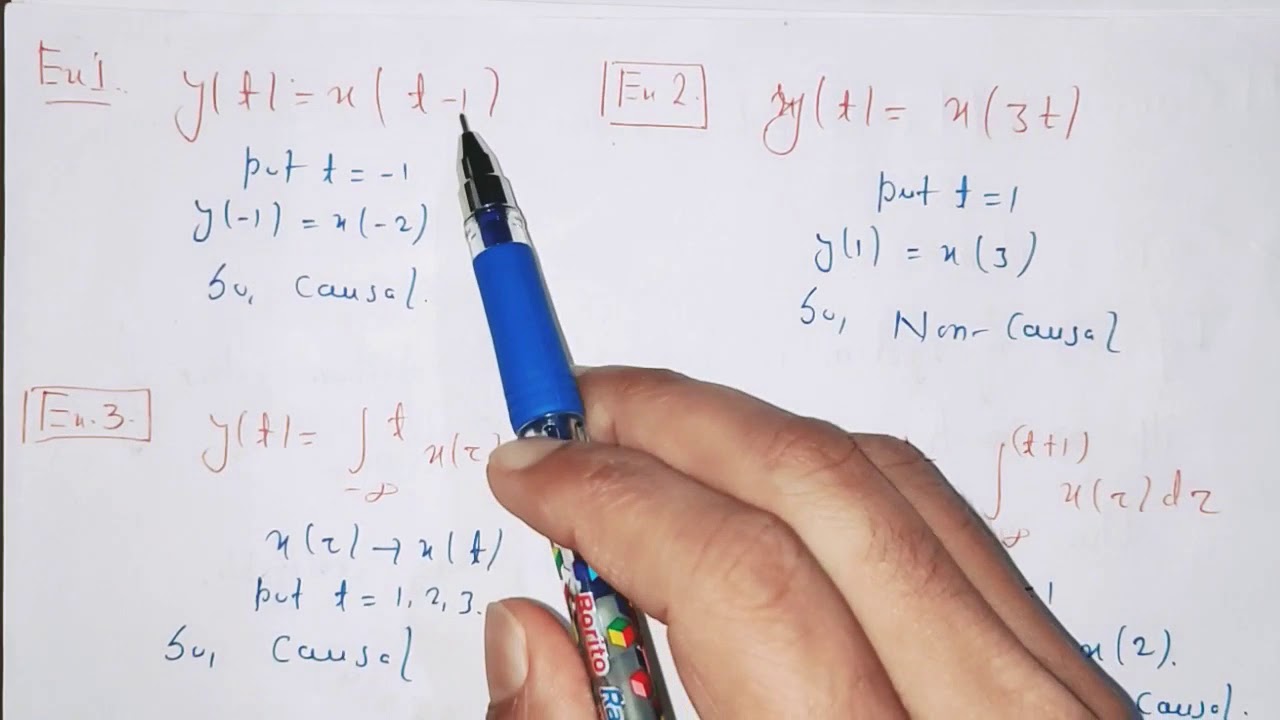 Ex 1. y(t) = x(t-1)
put t = -1
y(-1) = x(-2)
So, Causal.
Ex 2. y(t) = x(3t)
put t = 1
y(1) = x(3)
So, Non-Causal
Ex. 3. y(t) = ∫_{-∞}^{t} x(τ)
x(τ) → x(t)
put t = 1, 2, 3.
So, Causal
∫_{∞}^{(t+1)} x(τ) dτ
1
x(2).
Causal.
Borito
Ra